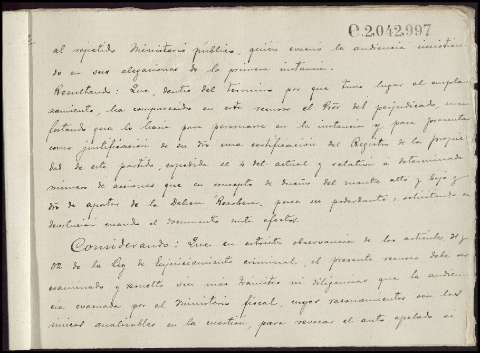 C.2.042.997
al repetido Ministerio público, quien evacuó la audiencia insistien-
do en sus alegaciones de la primera instancia.
Resultando: Que, dentro del término por que tuvo lugar el empla-
zamiento, ha comparecido en este recurso el Pdor del perjudicado, mani-
festando que lo hace para personarse en la instancia y para presentar
como justificación de su dro una certificación del Registro de la propie-
dad de este partido, expedida el 4 del actual y relativa a determinado
número de acciones que en concepto de dueños del monte alto y bajo y
dro de apostar de la dehesa posee su poderdante, solicitando su
devolución cuando el documento surta efectos.
Considerando: Que en estricta observancia de los artículos
de la Ley de Enjuiciamiento criminal, el presente recurso debe ser
examinado y resuelto sin más trámites ni diligencias que la audien-
cia evacuada por el Ministerio fiscal, cuyos razonamientos son los
únicos analizables en la cuestión, para revocar el auto apelado si